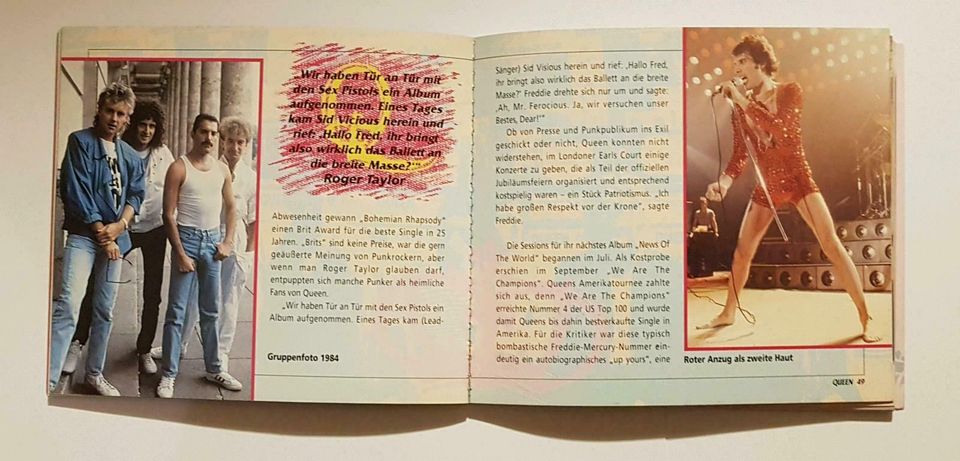 Wir haben Tür an Tür mit
den Sex Pistols ein Album
aufgenommen. Eines Tages
kam Sid Vicious herein und
rief: ‚Hallo Fred, ihr bringt
also wirklich das Ballett an
die breite Masse?‘“
Roger Taylor
Abwesenheit gewann „Bohemian Rhapsody“
einen Brit Award für die beste Single in 25
Jahren. „Brits“ sind keine Preise, war die gern
geäußerte Meinung von Punkrockern, aber
wenn man Roger Taylor glauben darf,
entpuppten sich manche Punker als heimliche
Fans von Queen.
„Wir haben Tür an Tür mit den Sex Pistols ein
Album aufgenommen. Eines Tages kam (Lead-
Gruppenfoto 1984
Sänger) Sid Visious herein und rief: ‚Hallo Fred,
ihr bringt also wirklich das Ballett an die breite
Masse?‘ Freddie drehte sich nur um und sagte:
‚Ah, Mr. Ferocious. Ja, wir versuchen unser
Bestes, Dear!‘“
Ob von Presse und Punkpublikum ins Exil
geschickt oder nicht, Queen konnten nicht
widerstehen, im Londoner Earls Court einige
Konzerte zu geben, die als Teil der offiziellen
Jubiläumsfeiern organisiert und entsprechend
kostspielig waren – ein Stück Patriotismus. „Ich
habe großen Respekt vor der Krone“, sagte
Freddie.
Die Sessions für ihr nächstes Album „News Of
The World“ begannen im Juli. Als Kostprobe
erschien im September „We Are The
Champions“. Queens Amerikatournee zahlte
sich aus, denn „We Are The Champions“
erreichte Nummer 4 der US Top 100 und wurde
damit Queens bis dahin bestverkaufte Single in
Amerika. Für die Kritiker war diese typisch
bombastische Freddie-Mercury-Nummer ein-
deutig ein autobiographisches „up yours“, eine
Roter Anzug als zweite Haut
QUEEN 49